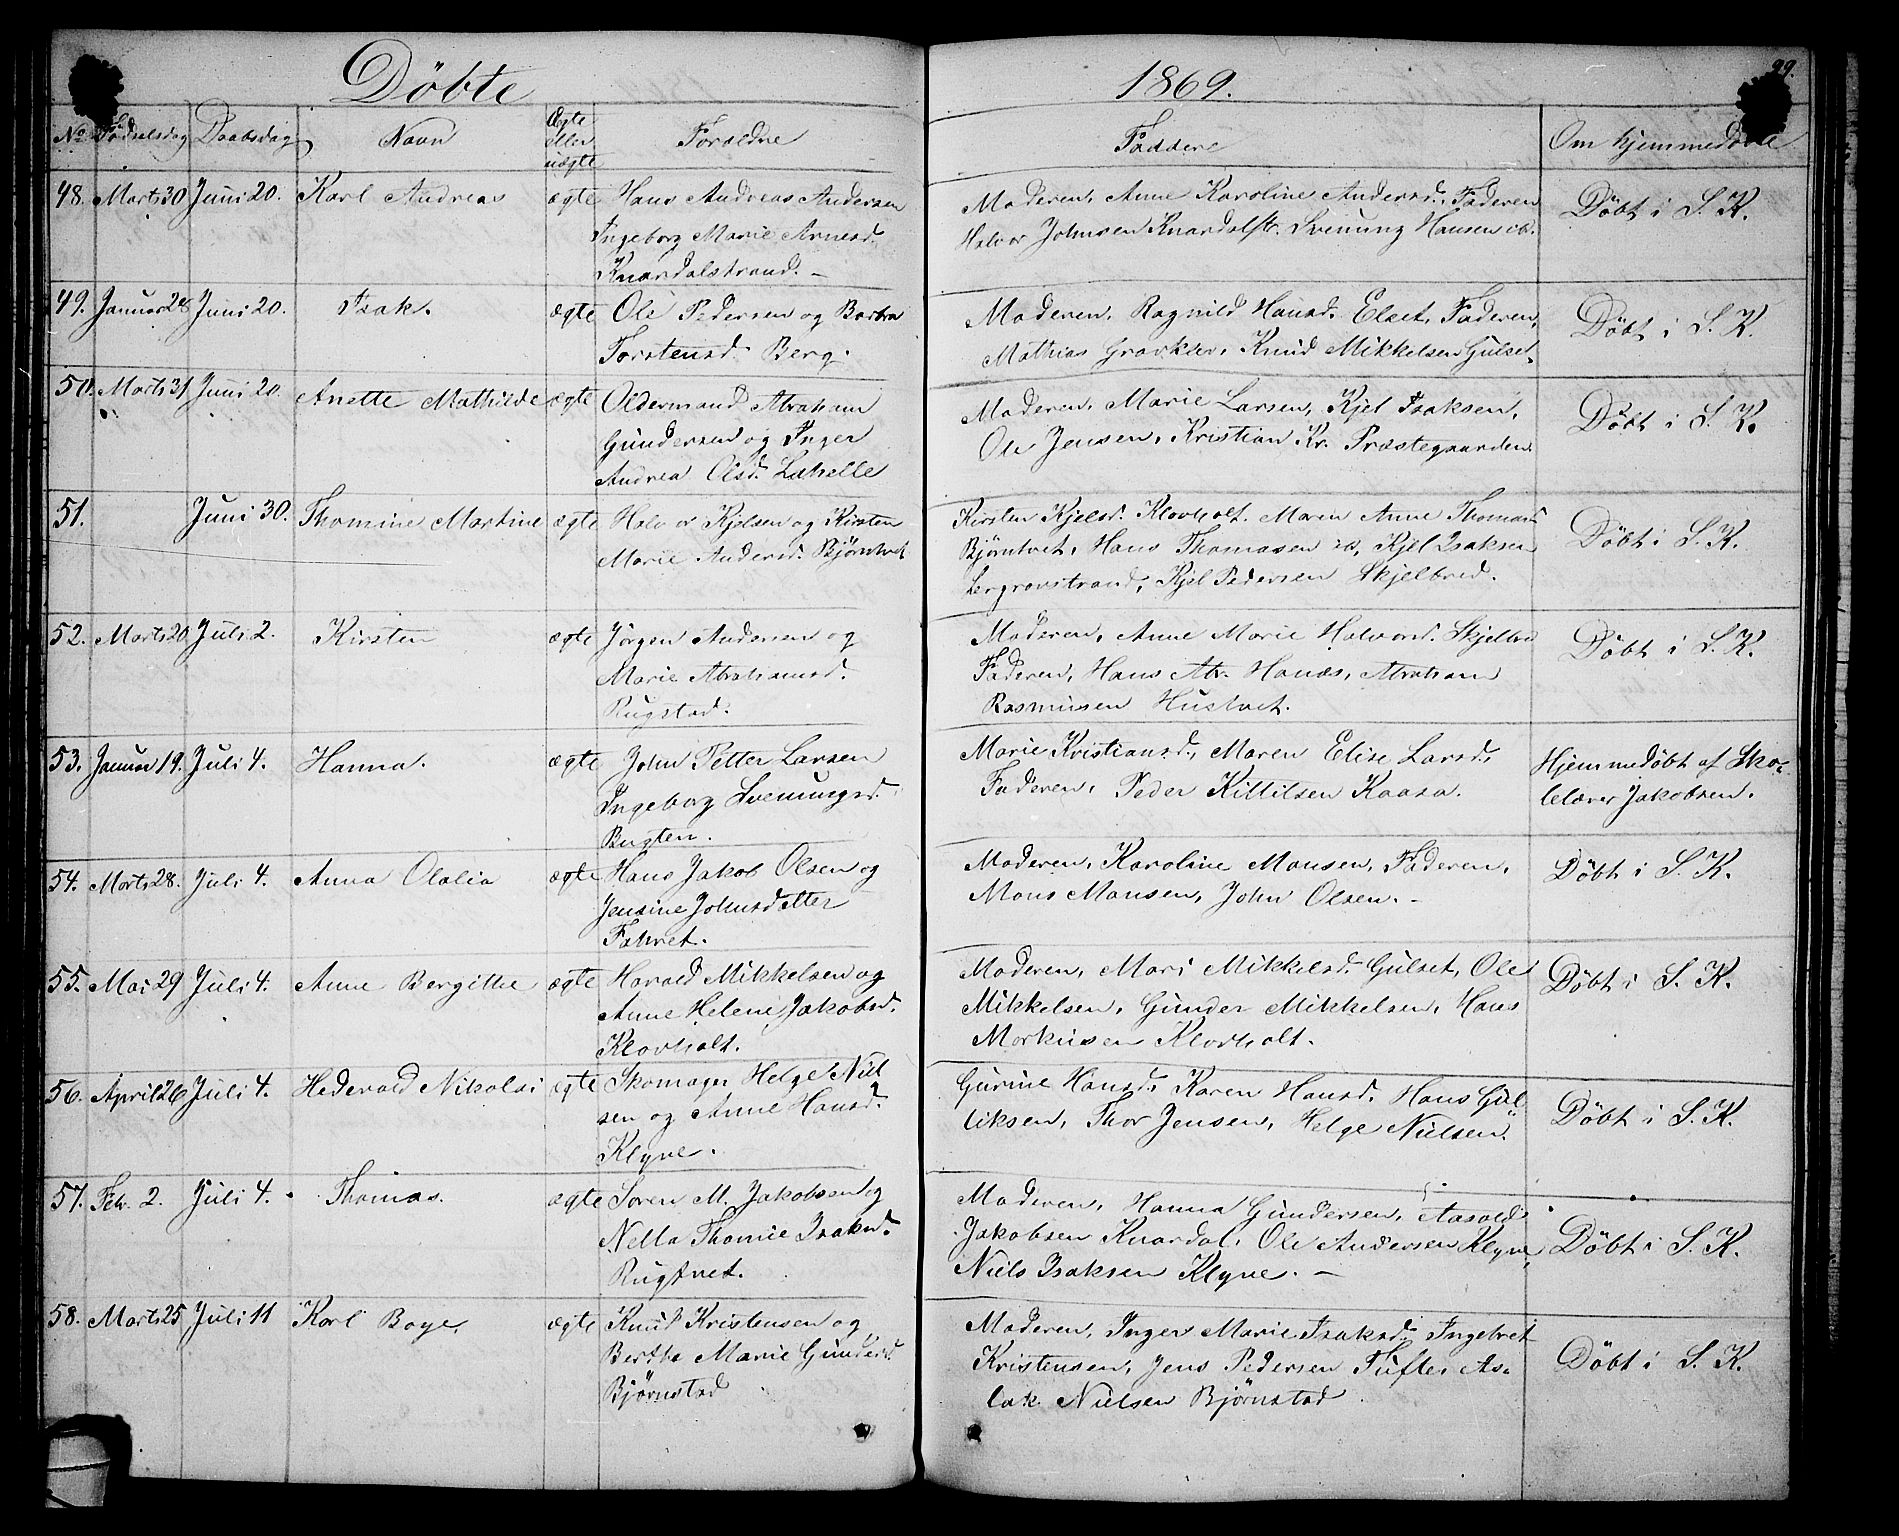 Döbte 1869. 99.
No Fødselsdag Daabsdag Navn Ægte eller uægte Foræld​re Faddere Om hjemmedøbt
48. Marts 30 Juni 20. Karl Andreas ægte Hans Andreas Andersen
Ingeborg Marie Arnesd.
Knardalstrand. –
Moderen, Anne Karoline Andersd., Faderen
Halvor Johnsen Knardalstr. Svenung Hansen ib.
Döbt i S. K.
49. Januar 28 Juni 20. Isak. ægte Ole Pedersen og Barbra
Torstensd. Berg.
Moderen, Ragnild Hansd. Elset, Faderen,
Mathias Gravklev, Knud Mikkelsen Gulset,
Döbt i S. K.
50. Marts 31 Juni 20. Anette Mathilde ægte Oldermand Abraham
Gundersen og Inger
Andrea Olsd. Lakselle
Moderen, Marie Larsen, Kjel Isaksen,
Ole Jensen, Kristian Kr. Præstegaarden
Döbt i S. K.
51. Juni 30. Thomine Martine ægte Halvor Kjelsen og Kirsten
Marie Andersd. Bjørntvet
Kirsten Kjelsd. Klovholt. Maren Anne Thomasd
Bjørntvet, Hans Thomasen ib, Kjel Isaksen
Lergravstrand, Kjel Pedersen Skjelbred.
Döbt i S. K.
52. Marts 20 Juli 2. Kirsten ægte Jörgen Andersen og
Marie Abrahamsd.
Rugstad.
Moderen, Anne Marie Halvorsd. Skjelbre
Faderen, Hans Abr. Hanæs, Abraham
Rasmusen Hustvet.
Döbt i S. K.
53. Januar 19. Juli 4. Hanna. ægte John Petter Larsen
Ingeborg Svenungsd.
Bugten.
Marie Kristiansd., Maren Elise Larsd,
Faderen, Peder Kittilsen Kaasa.
Hjemmedöbt af Sko-
lelærer Jakobsen.
54. Marts 28. Juli 4. Anna Olalia ægte Hans Jakob Olsen og
Jensine Johnsdatter
Fahvet.
Moderen, Karoline Mansen, Faderen,
Mons Mansen, John Olsen. –
Döbt i S. K.
55. Mai 29 Juli 4. Anne Bergithe ægte Harald Mikkelsen og
Anne Helene Jakobsd.
Klovholt.
Moderen, Mari Mikkelsd. Gulset, Ole
Mikkelsen, Gunder Mikkelsen, Hans
Markusen Klovholt.
Döbt i S. K.
56. April 26 Juli 4. Hedevald Nikolai ægte Skomager Helge Niel
sen og Anne Hansd.
Klyve.
Gurine Hansd, Karen Hansd. Hans Gul
liksen, Thor Jensen, Helge Nielsen.
Döbt i S. K.
57. Feb. 2. Juli 4. Thomas. ægte Soren M. Jakobsen og
Nella Thomie Isaksd.
Rugtvet.
Moderen, Hanna Gundersen, Aasold
Jakobsen Knardal, Ole Andersen Klyve,
Niels Isaksen Klyve. –
Döbt i S. K.
58. Marts 25 Juli 11 Karl Boye, ægte Knut Kristensen og
Berthe Marie Gundersd.
Bjørnstad
Moderen, Inger Marie Isaksd. Ingebret
Kristensen, Jens Pedersen Tufte, As-
lak Nielsen Bjørnstad.
Döbt i S. K.